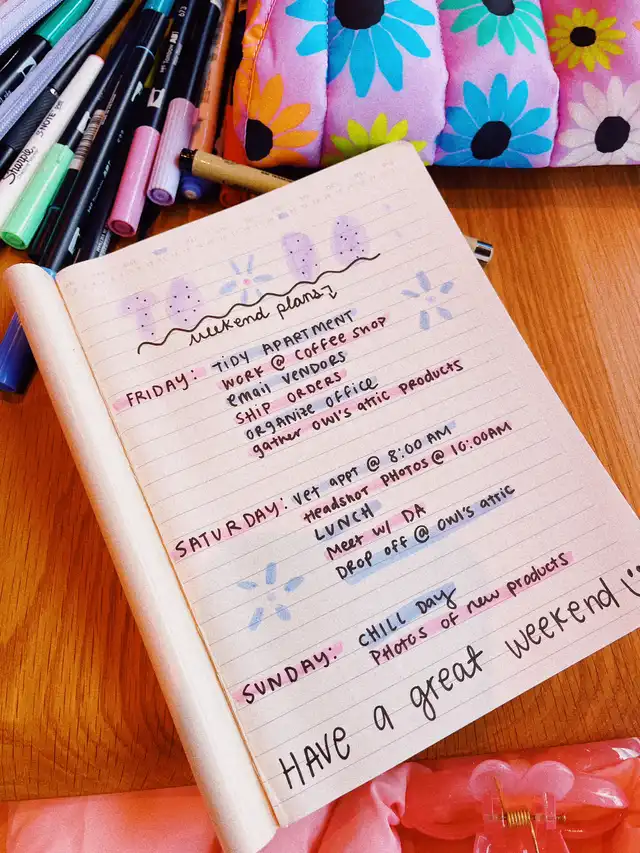 Sharpie
S•NOTE
673
weekend plans
FRIDAY: TIDY APARTMENT
WORK @ COFFEE SHOP
EMAIL VENDORS
SHIP ORDERS
ORGANIZE OFFICE
gather owl's attic products
SATURDAY: Vet appt @ 8:00 AM
Headshot PHOTOS @ 10:00AM
LUNCH
Meet w/ DA
DROP OFF @ owl's attic
SUNDAY: CHILL DAY
PHOTOS of new products
HAVE a great weekend